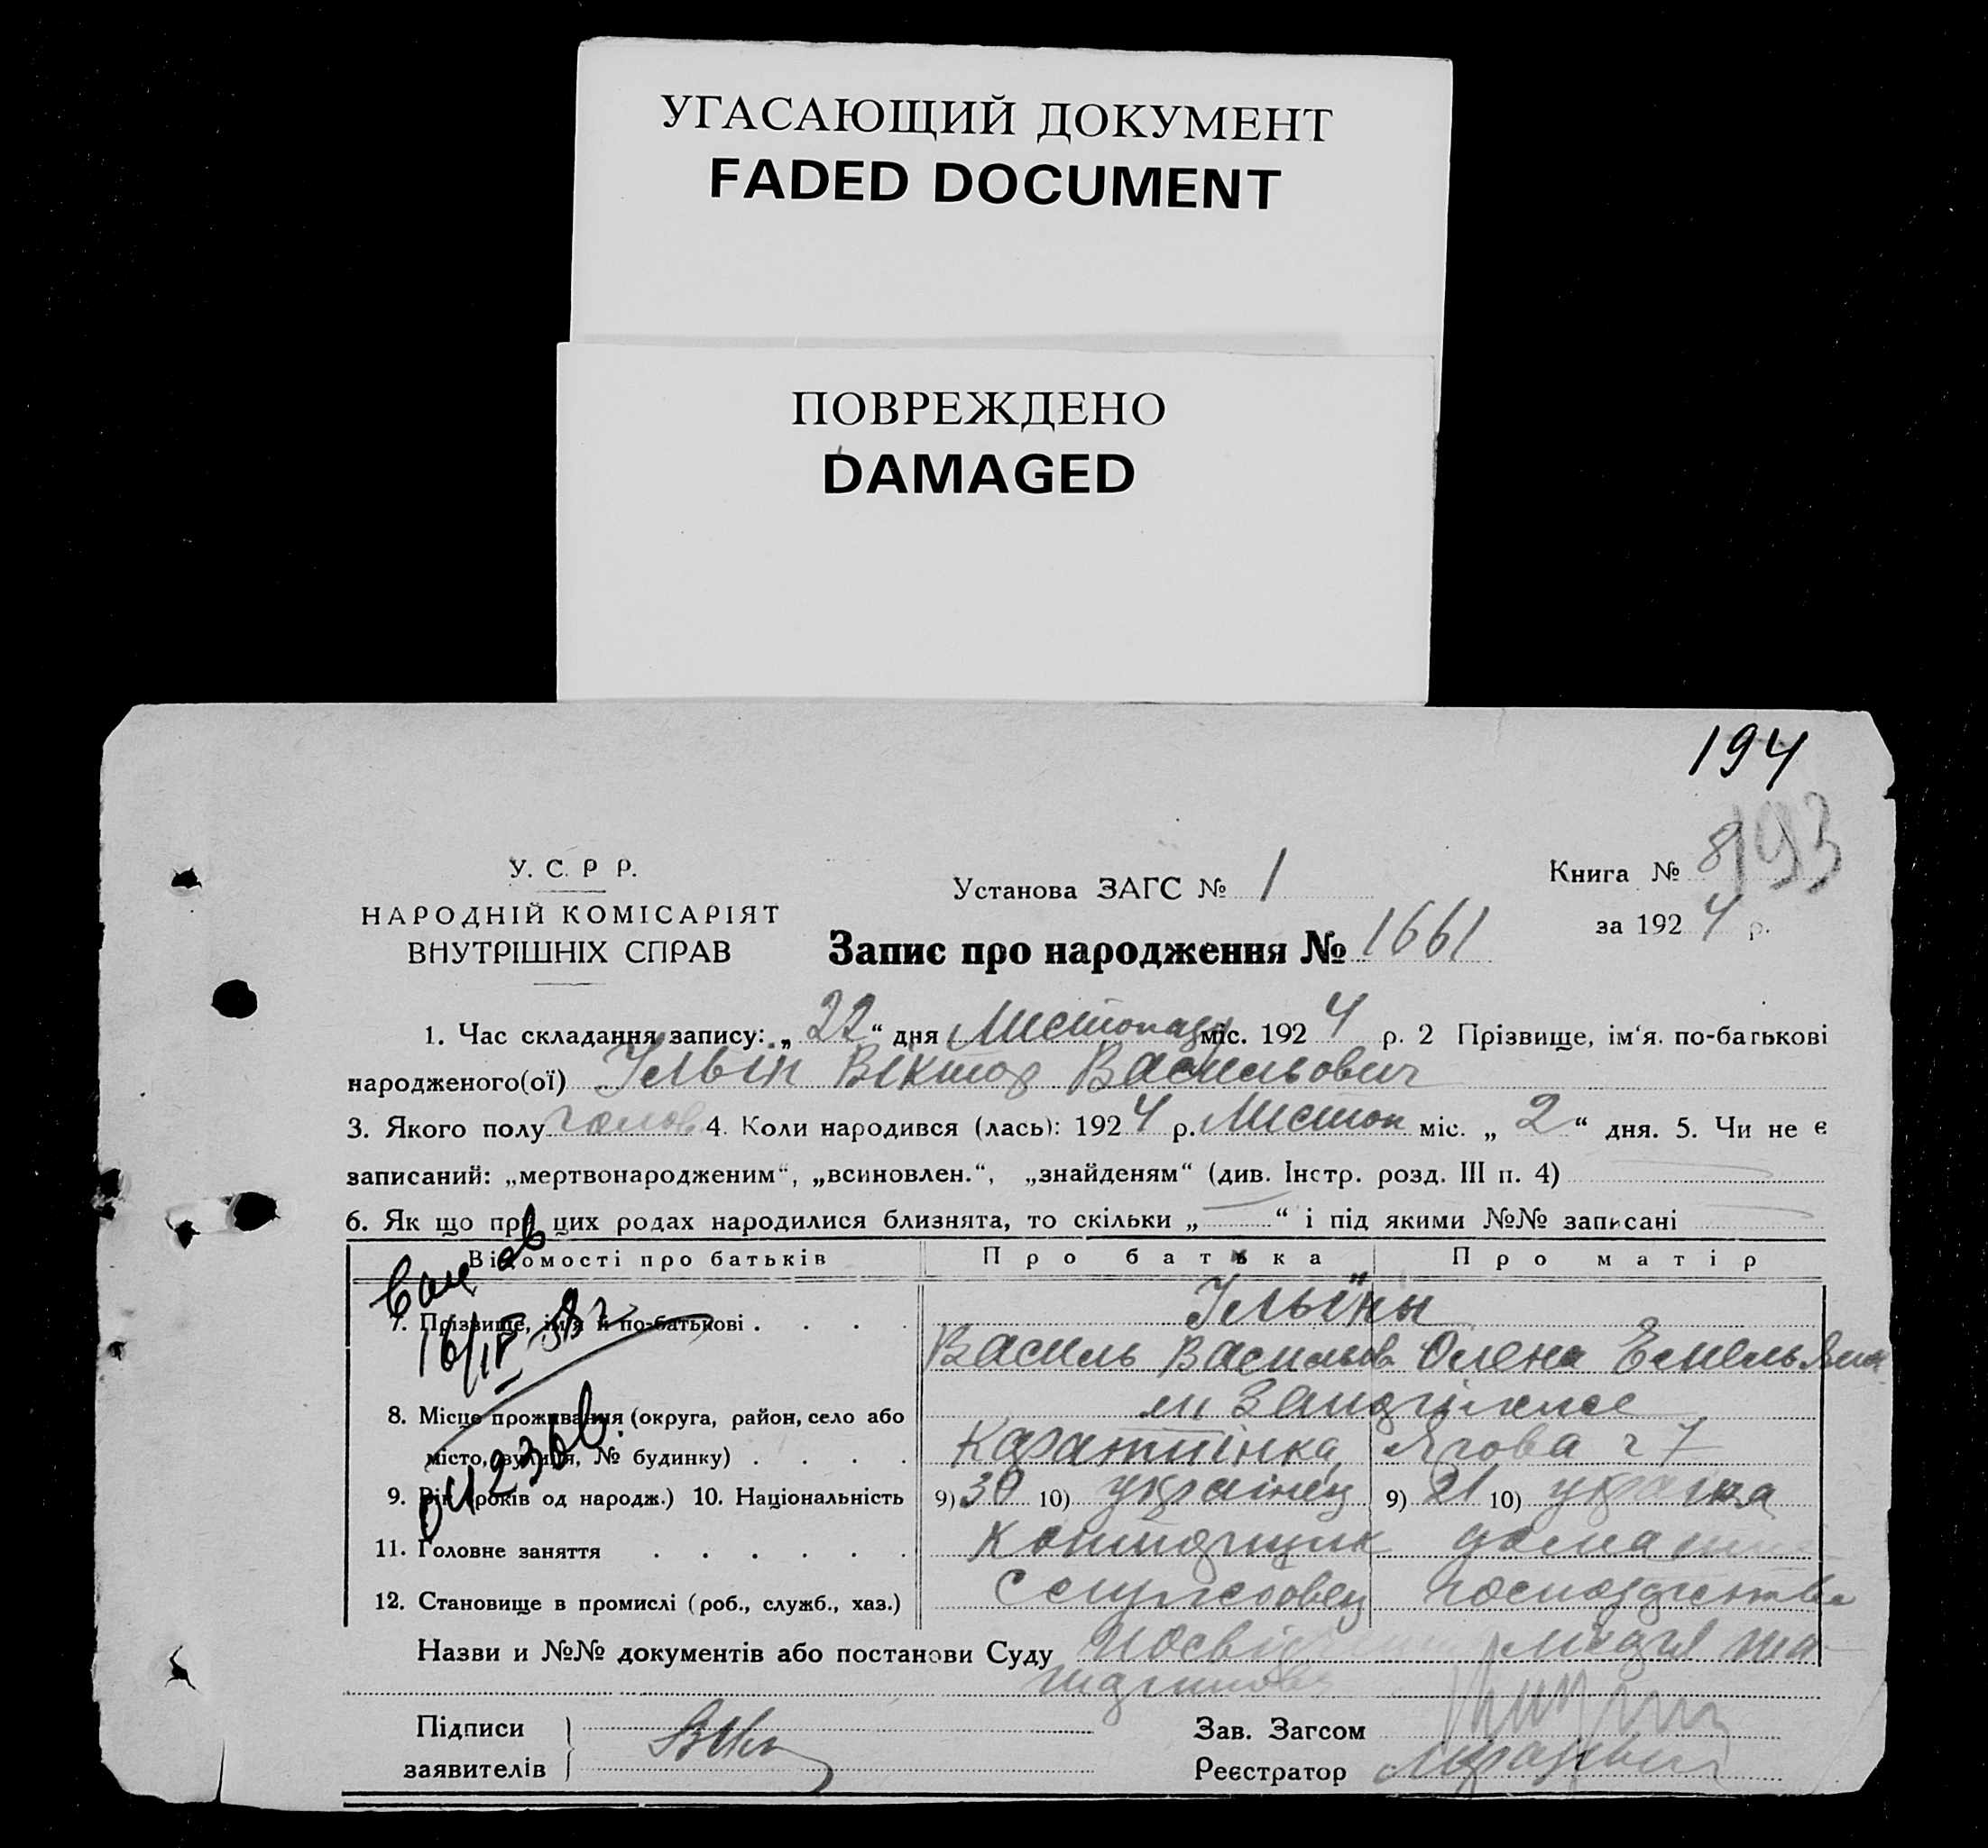 УГАСАЮЩИЙ ДОКУМЕНТ
FADED DOCUMENT
ПОВРЕЖДЕНО
DAMAGED
194
193
У. С. Р Р.
НАРОДНІЙ КОМІСАРІЯТ
ВНУТРІШНІХ СПРАВ
Установа ЗАГС № 1
Книга № 8
за 1924 р.
Запис про народження № 1661
1. Час складання запису: „ 22 “ дня Листопада міс. 1924 р. 2 Прізвище, ім‘я. по-батькові
народженого(ої) Ільїн Віктор Васильович
3. Якого полу чолов 4. Коли народився (лась): 1924 р. Листоп міс. „ 2 “ дня. 5. Чи не є
записаний: „мертвонародженим“, „всиновлен.“, „знайденям“ (див. Інстр. розд. III п. 4)
6. Як що при цих родах народилися близнята, то скільки „ “ і під якими №№ записані
Відомості про батьків Про батька Про матір
7. Прізвище, ім‘я й по-батькові . . . . Ільїны
Василь Васильов Олена Емельян
8. Місце проживання (округа, район, село або
місто, вулиця, № будинку) . . . . Ягова 7
9. Рік (років од народж.) 10. Національність 9) 30 10) українец 9) 21 10) українка
11. Головне заняття . . . . . . домашн
12. Становище в промислі (роб., служб., хаз.) Службовец господарство
Назви и №№ документів або постанови Суду
Підписи
заявителів
Зав. Загсом
Реєстратор